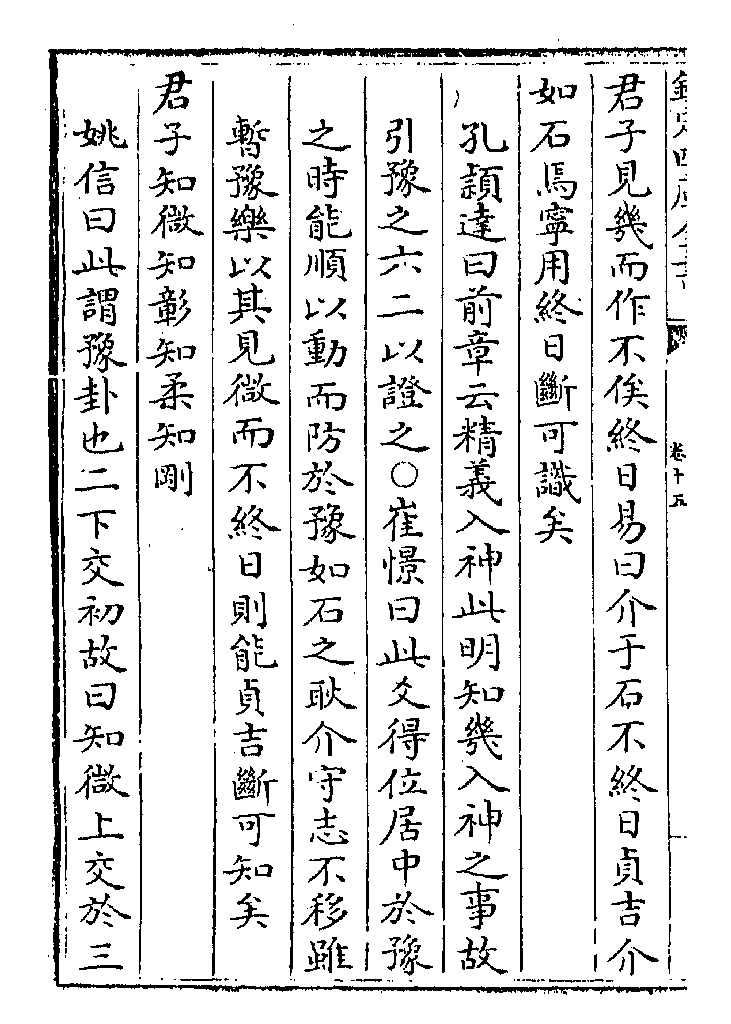 欽定四庫全書
卷十五
君子見幾而作不俟終日易曰介于石不終日貞吉介
如石焉寧用終日斷可識矣
孔穎達曰前章云精義入神此明知幾入神之事故
引豫之六二以證之○崔憬曰此爻得位居中於豫
之時能順以動而防於豫如石之耿介守志不移雖
暫豫樂以其見微而不終日則能貞吉斷可知矣
君子知微知彰知柔知剛
姚信曰此謂豫卦也二下交初故曰知微上交於三